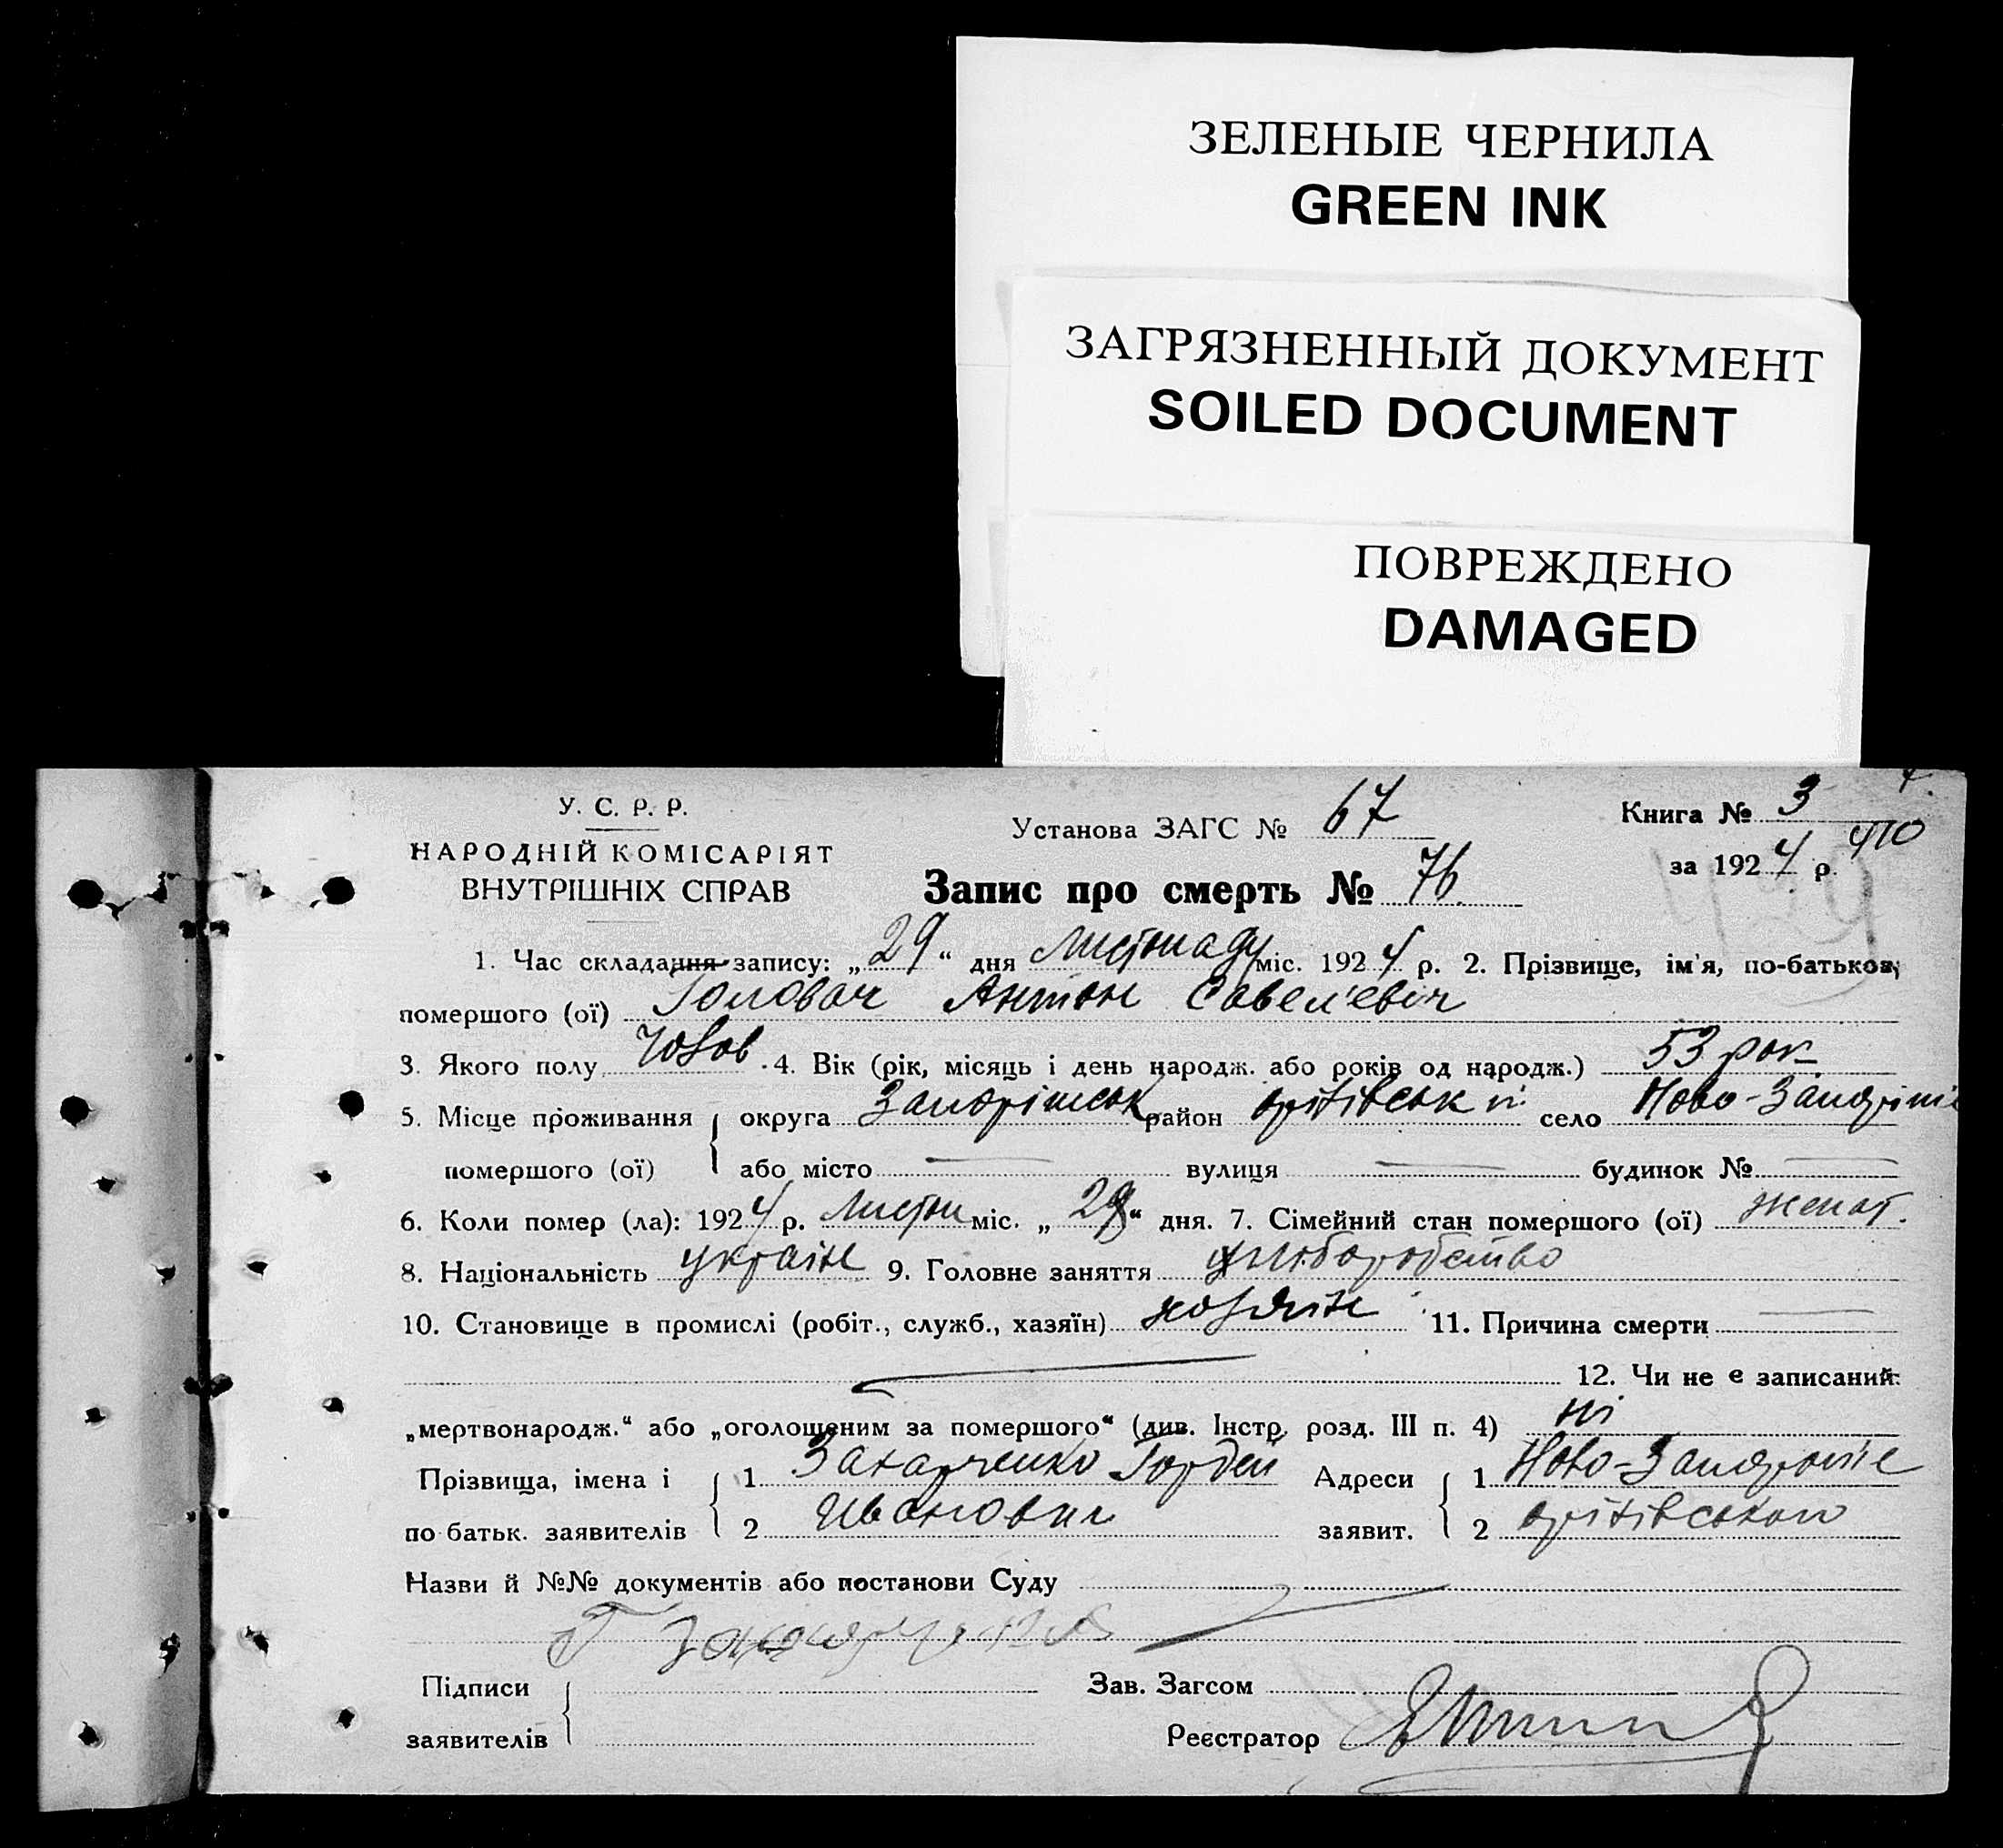 ЗЕЛЕНЫЕ ЧЕРНИЛА
GREEN INK
ЗАГРЯЗНЕННЫЙ ДОКУМЕНТ
SOILED DOCUMENT
ПОВРЕЖДЕНО
DAMAGED
У. С. Р. Р.
НАРОДНІЙ КОМІСАРІЯТ
ВНУТРІШНІХ СПРАВ
Установа ЗАГС № 67
Книга № 3
за 1924 р. 410
Запис про смерть № 76.
1. Час складання запису: „29“ дня листопаду міс. 1924 р. 2. Прізвище, ім'я, по-батькові
помершого (ої) Головач Антон Савел'евіч
3. Якого полу чолов. 4. Вік (рік, місяць і день народж. або років од народж.) 53 рок
5. Місце проживання округа Запоріжськ район село Ново-Запоріжжя
помершого (ої) або місто — вулиця — будинок № —
6. Коли помер (ла): 1924 р. листоп міс. „28“ дня. 7. Сімейний стан помершого (ої) женат.
8. Національність україн 9. Головне заняття хліборобство
10. Становище в промислі (робіт., служб., хазяїн) хозяїн 11. Причина смерти —
12. Чи не є записаний
„мертвонародж.“ або „оголошеним за помершого“ (див. Інстр. розд. III п. 4) ні
Прізвища, імена і 1 Захарченко Гордей Адреси 1 Ново-Запорожже
по батьк. заявителів 2 Иванович заявит. 2
Назви й №№ документів або постанови Суду
Г Захарченко
Підписи Зав. Загсом
заявителів Реєстратор